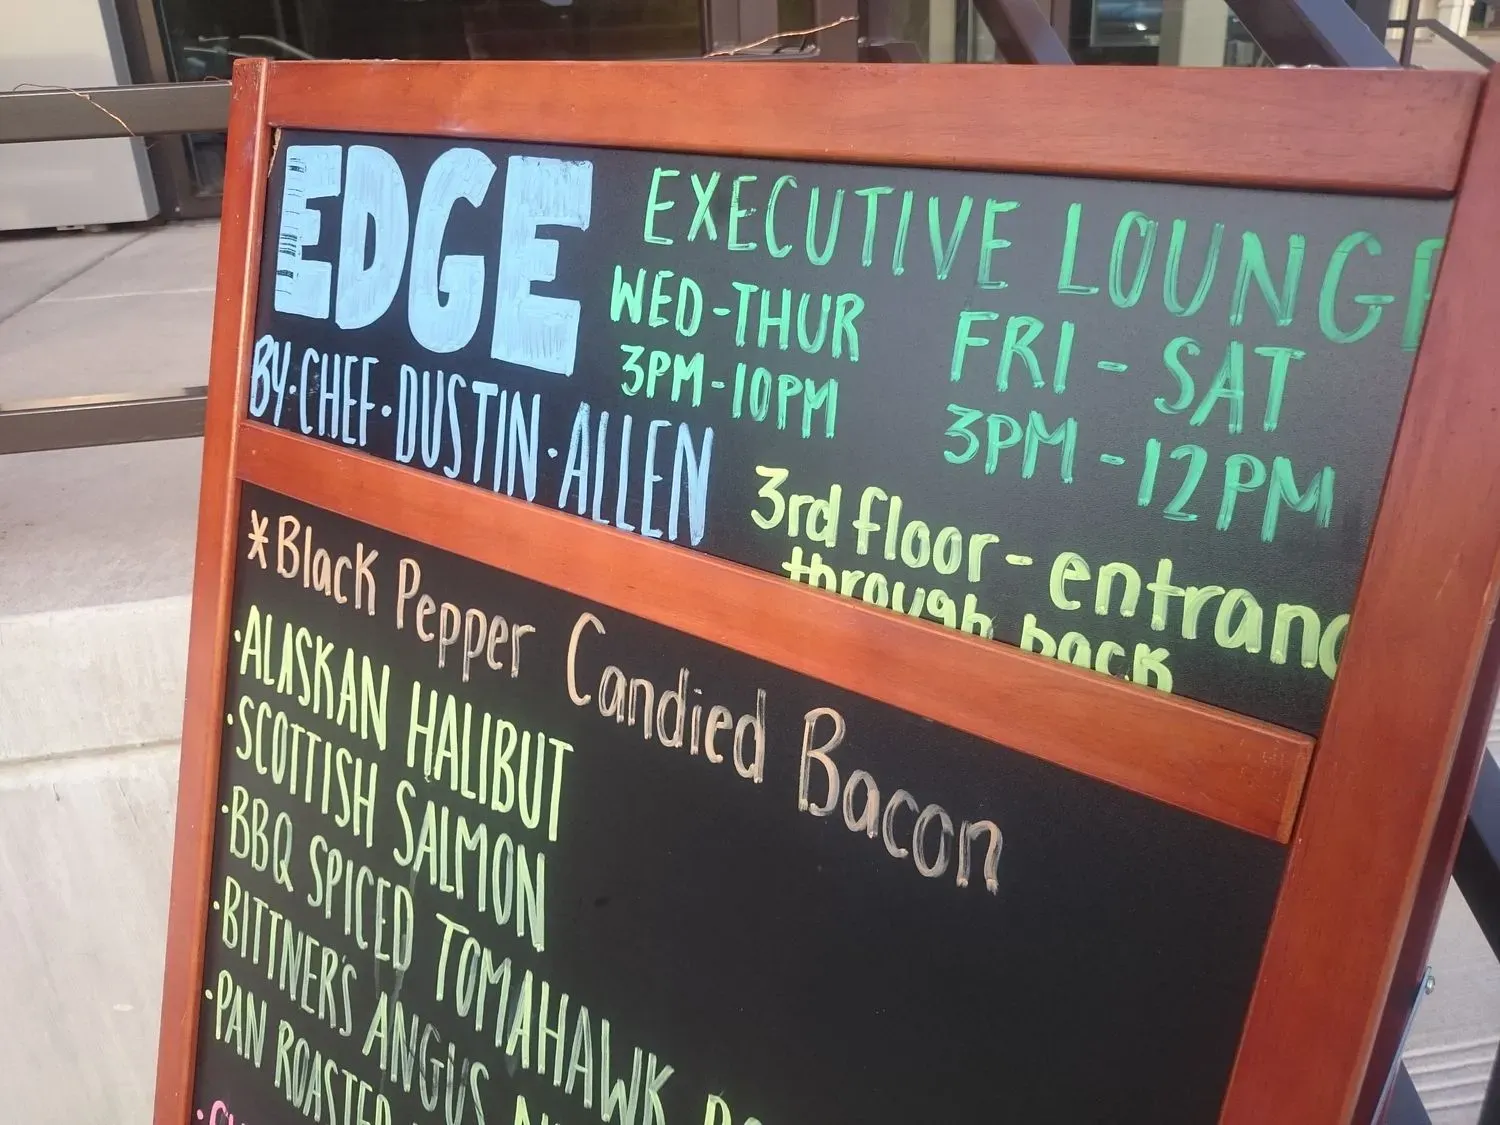 EDGE
BY·CHEF·DUSTIN·ALLEN
EXECUTIVE LOUNGE
WED-THUR
3PM-10PM
FRI - SAT
3PM -12PM
3rd floor - entranc
through back
*Black Pepper Candied Bacon
·ALASKAN HALIBUT
·SCOTTISH SALMON
·BBQ SPICED TOMAHAWK
·BITTNER'S ANGUS
·PAN ROASTED